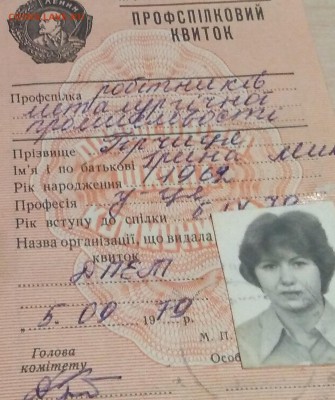 ЛЕНИН
ПРОФСПІЛКОВИЙ
КВИТОК
Профспілка робітників
металургічної
промисловості
Прізвище
Ім'я і по батькові Ірина
Рік народження 1962
Професія
Рік вступу до спілки
Назва організації, що видала
квиток
5. 09 1979 р.
М. П.
Особ
Голова
комітету